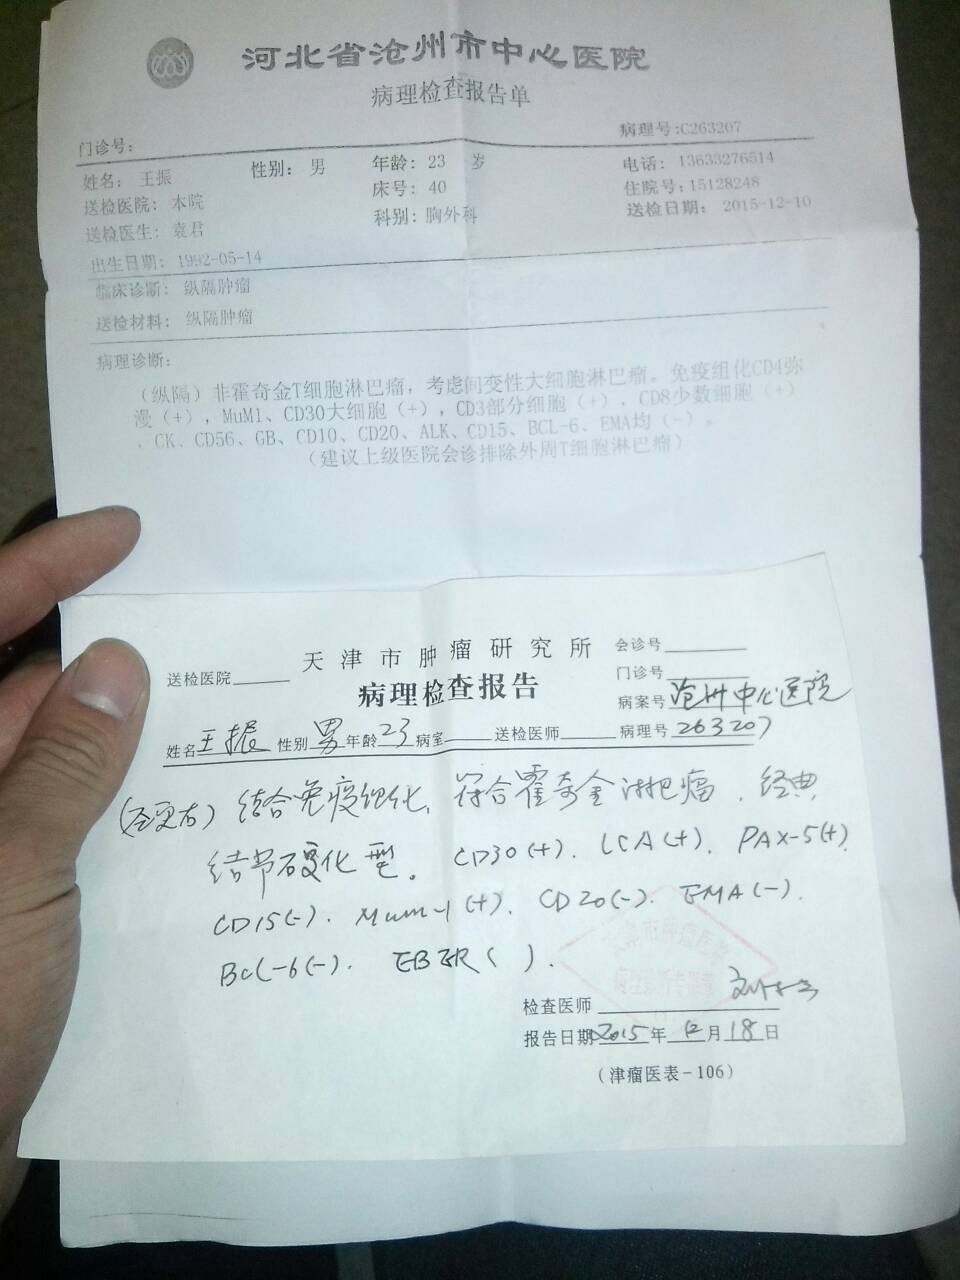 河北省沧州市中心医院
病理检查报告单
门诊号:
病理号:C263207
姓名: 王振 性别: 男 年龄: 23 岁 电话: 13633276514
送检医院: 本院 床号: 40 住院号:15128248
送检医生: 袁君 科别: 胸外科 送检日期: 2015-12-10
出生日期: 1992-05-14
临床诊断: 纵隔肿瘤
送检材料: 纵隔肿瘤
病理诊断:
(纵隔)非霍奇金T细胞淋巴瘤,考虑间变性大细胞淋巴瘤。免疫组化CD4弥
漫(+),MuM1、CD30大细胞(+),CD3部分细胞(+),CD8少数细胞(+)
、CK、CD56、GB、CD10、CD20、ALK、CD15、BCL-6、EMA均(-)。
(建议上级医院会诊排除外周T细胞淋巴瘤)
天津市肿瘤研究所
病理检查报告
会诊号
送检医院
门诊号
病案号 沧州中心医院
姓名 王振 性别 男 年龄 23 病室 送检医师 病理号 263207
结合免疫组化、符合霍奇金淋巴瘤、经典
结节硬化型。CD30(+). LCA(+). PAX-5(+)
CD15(-). Mum-1(+). CD20(-). EMA(-).
Bcl-6(-). EBER( ).
检查医师
报告日期 2015年12月18日
(津瘤医表-106)